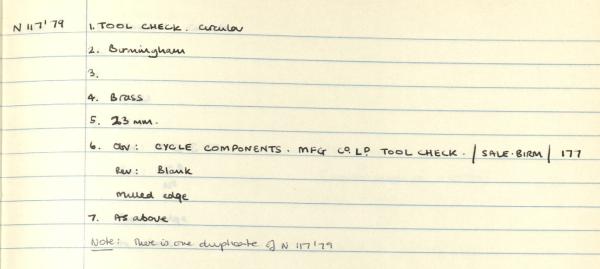 N 117'79 1. TOOL CHECK. Circular
2. Birmingham
3.
4. Brass
5. 23 mm.
6. Obv: CYCLE COMPONENTS. MFG Co. LD. TOOL CHECK. / SALE·BIRM / 177
Rev: Blank
Milled edge
7. As above
Note: There is one duplicate of N 117'79